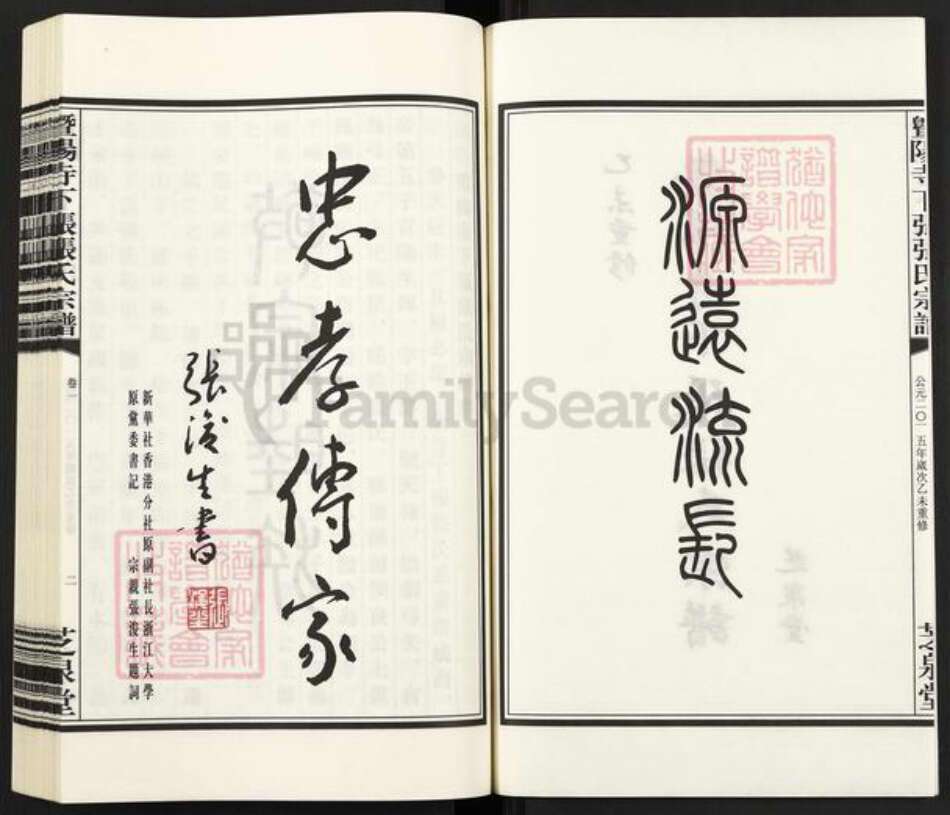 暨陽寺下張張氏宗譜
公元二〇一五年歲次乙未重修
芝泉堂
源遠流長
忠孝傳家
張浚生書
新華社香港分社原副社長浙江大學
原黨委書記
宗親張浚生題詞
暨陽寺下張張氏宗譜
卷一
二
芝泉堂
猶他家譜學會
猶他家譜學會
FamilySearch